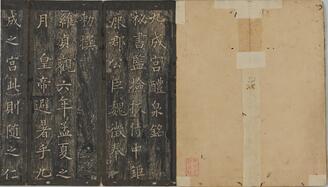 九成宮醴泉銘
秘書監撿挍侍中鉅
鹿郡公臣魏徵奉
勅撰
維貞觀六年孟夏之
月皇帝避暑乎九
成之宮此則隨之仁